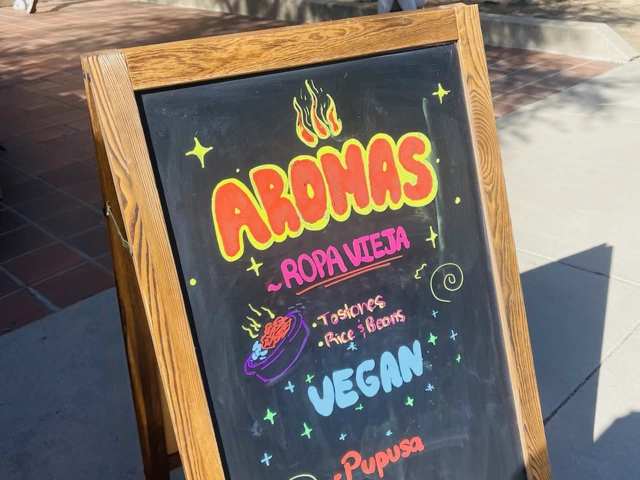 AROMAS
~ROPA VIEJA
• Tostones
• Rice & Beans
VEGAN
~Pupusa